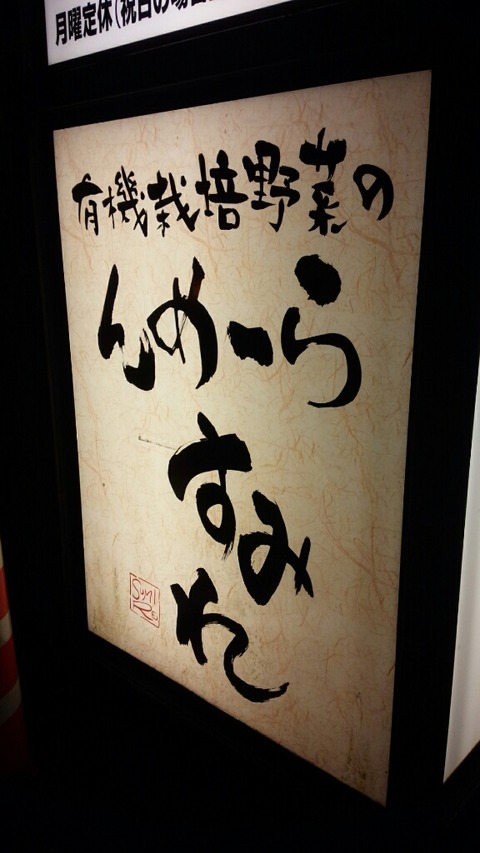 月曜定休(祝日の場合
有機栽培野菜の
らーめん
すみれ
SUMI
Re